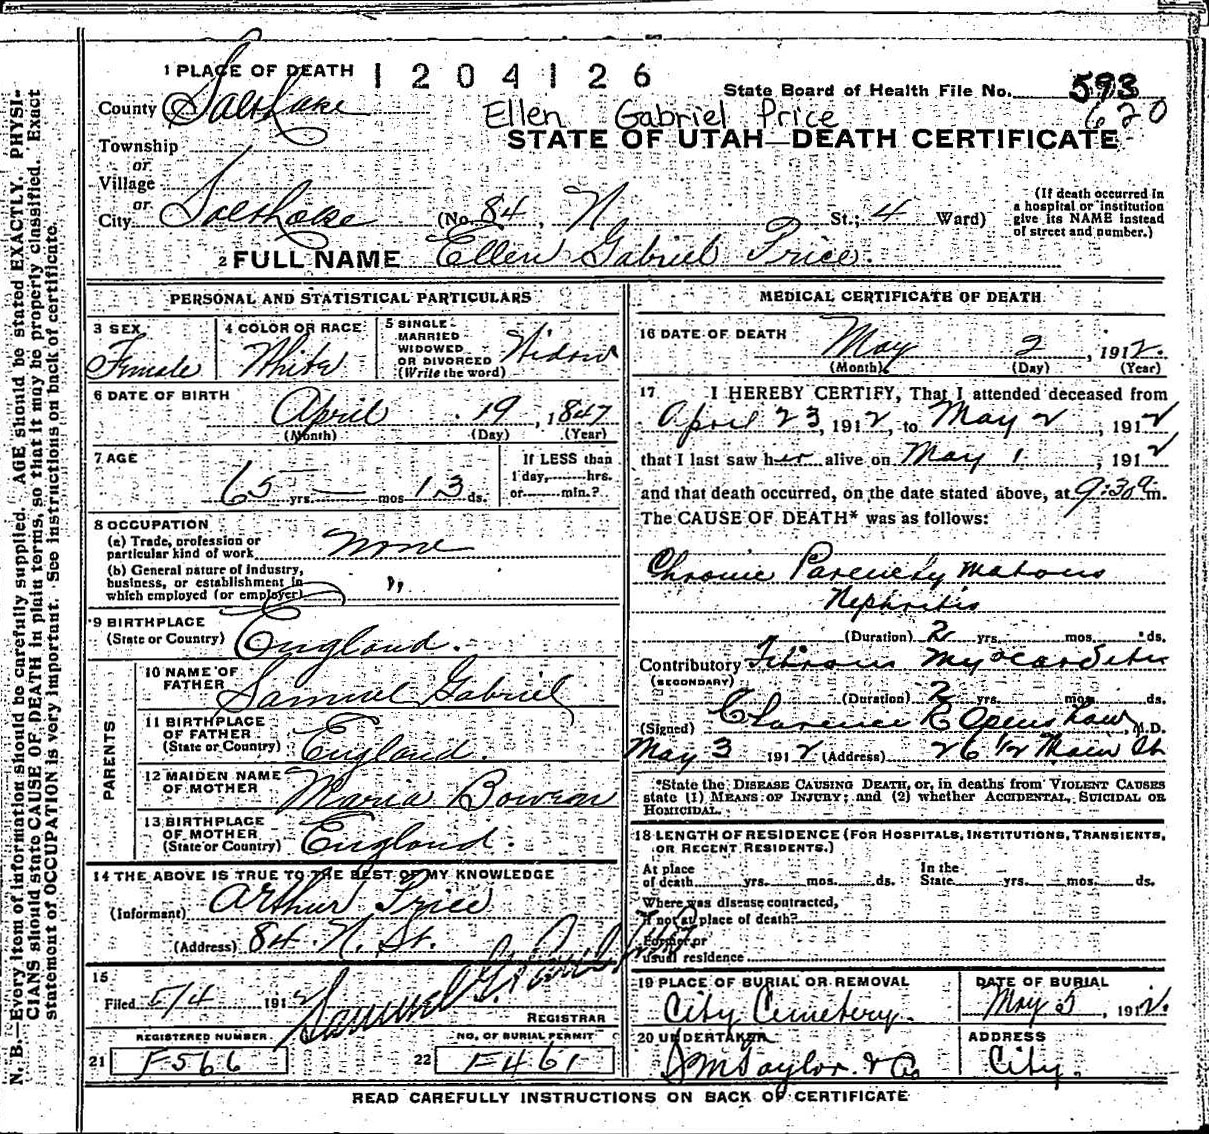 1 PLACE OF DEATH 1204126
State Board of Health File No. 593
620
County Salt Lake
Ellen Gabriel Price
STATE OF UTAH—DEATH CERTIFICATE
Township
or
Village
or
City Salt Lake (No. 84, N St.; 4 Ward)
(If death occurred in
a hospital or institution
give its NAME instead
of street and number.)
2 FULL NAME Ellen Gabriel Price.
PERSONAL AND STATISTICAL PARTICULARS
3 SEX Female
4 COLOR OR RACE White
5 SINGLE
MARRIED
WIDOWED
OR DIVORCED
(Write the word)
Widow
6 DATE OF BIRTH
April 19, 1847
(Month) (Day) (Year)
7 AGE
65 yrs. — mos 13 ds.
If LESS than
1 day, hrs.
or min.?
8 OCCUPATION
(a) Trade, profession or
particular kind of work none
(b) General nature of industry,
business, or establishment in
which employed (or employer) "
9 BIRTHPLACE
(State or Country) England.
PARENTS
10 NAME OF
FATHER Samuel Gabriel
11 BIRTHPLACE
OF FATHER
(State or Country) England.
12 MAIDEN NAME
OF MOTHER Maria Bowean
13 BIRTHPLACE
OF MOTHER
(State or Country) England.
14 THE ABOVE IS TRUE TO THE BEST OF MY KNOWLEDGE
(Informant) Arthur Price
(Address) 84. N. St.
15
Filed 5/4 1912 Samuel G. Paul
REGISTRAR
REGISTERED NUMBER NO. OF BURIAL PERMIT
21 F566 22 F461
MEDICAL CERTIFICATE OF DEATH
16 DATE OF DEATH
May 2, 1912.
(Month) (Day) (Year)
17 I HEREBY CERTIFY, That I attended deceased from
April 23, 1912, to May 2, 1912
that I last saw her alive on May 1, 1912
and that death occurred, on the date stated above, at 9:30 a m.
The CAUSE OF DEATH* was as follows:
Chronic Parenchymatous
Nephritis
(Duration) 2 yrs. mos. ds.
Contributory Fibrous Myocarditis
(SECONDARY)
(Duration) 2 yrs. mos. ds.
(Signed) Clarence E Openshaw, M.D.
May 3 1912 (Address) 26 1/2 Main St
*State the DISEASE CAUSING DEATH, or, in deaths from VIOLENT CAUSES
state (1) MEANS OF INJURY; and (2) whether ACCIDENTAL, SUICIDAL OR
HOMICIDAL.
18 LENGTH OF RESIDENCE (FOR HOSPITALS, INSTITUTIONS, TRANSIENTS,
OR RECENT RESIDENTS.)
At place
of death yrs. mos. ds.
In the
State yrs. mos. ds.
Where was disease contracted,
if not at place of death?
Former or
usual residence
19 PLACE OF BURIAL OR REMOVAL
City Cemetery.
DATE OF BURIAL
May 5, 1912.
20 UNDERTAKER
S M Taylor & Co
ADDRESS
City.
READ CAREFULLY INSTRUCTIONS ON BACK OF CERTIFICATE
N. B.—Every item of information should be carefully supplied. AGE should be stated EXACTLY. PHYSI-
CIANS should state CAUSE OF DEATH in plain terms, so that it may be properly classified. Exact
statement of OCCUPATION is very important. See instructions on back of certificate.